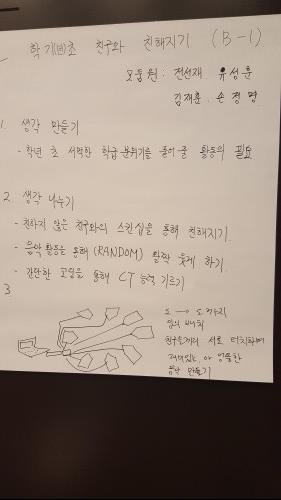 학기(반)초 친구와 친해지기 (B-1)
모둠원 : 전선재, 유성훈
김재훈, 손정명
1. 생각 만들기
- 학년 초 서먹한 학급 분위기를 풀어 줄 활동의 필요
2. 생각 나누기
- 친하지 않은 친구와의 스킨쉽을 통해 친해지기
- 음악 활동을 통해 (RANDOM) 활짝 웃게 하기
- 간단한 코딩을 통해 CT 능력 기르기
3
도 → 도 까지
임의 배치
친구들끼리 서로 터치하며
재미있는,
음악 만들기